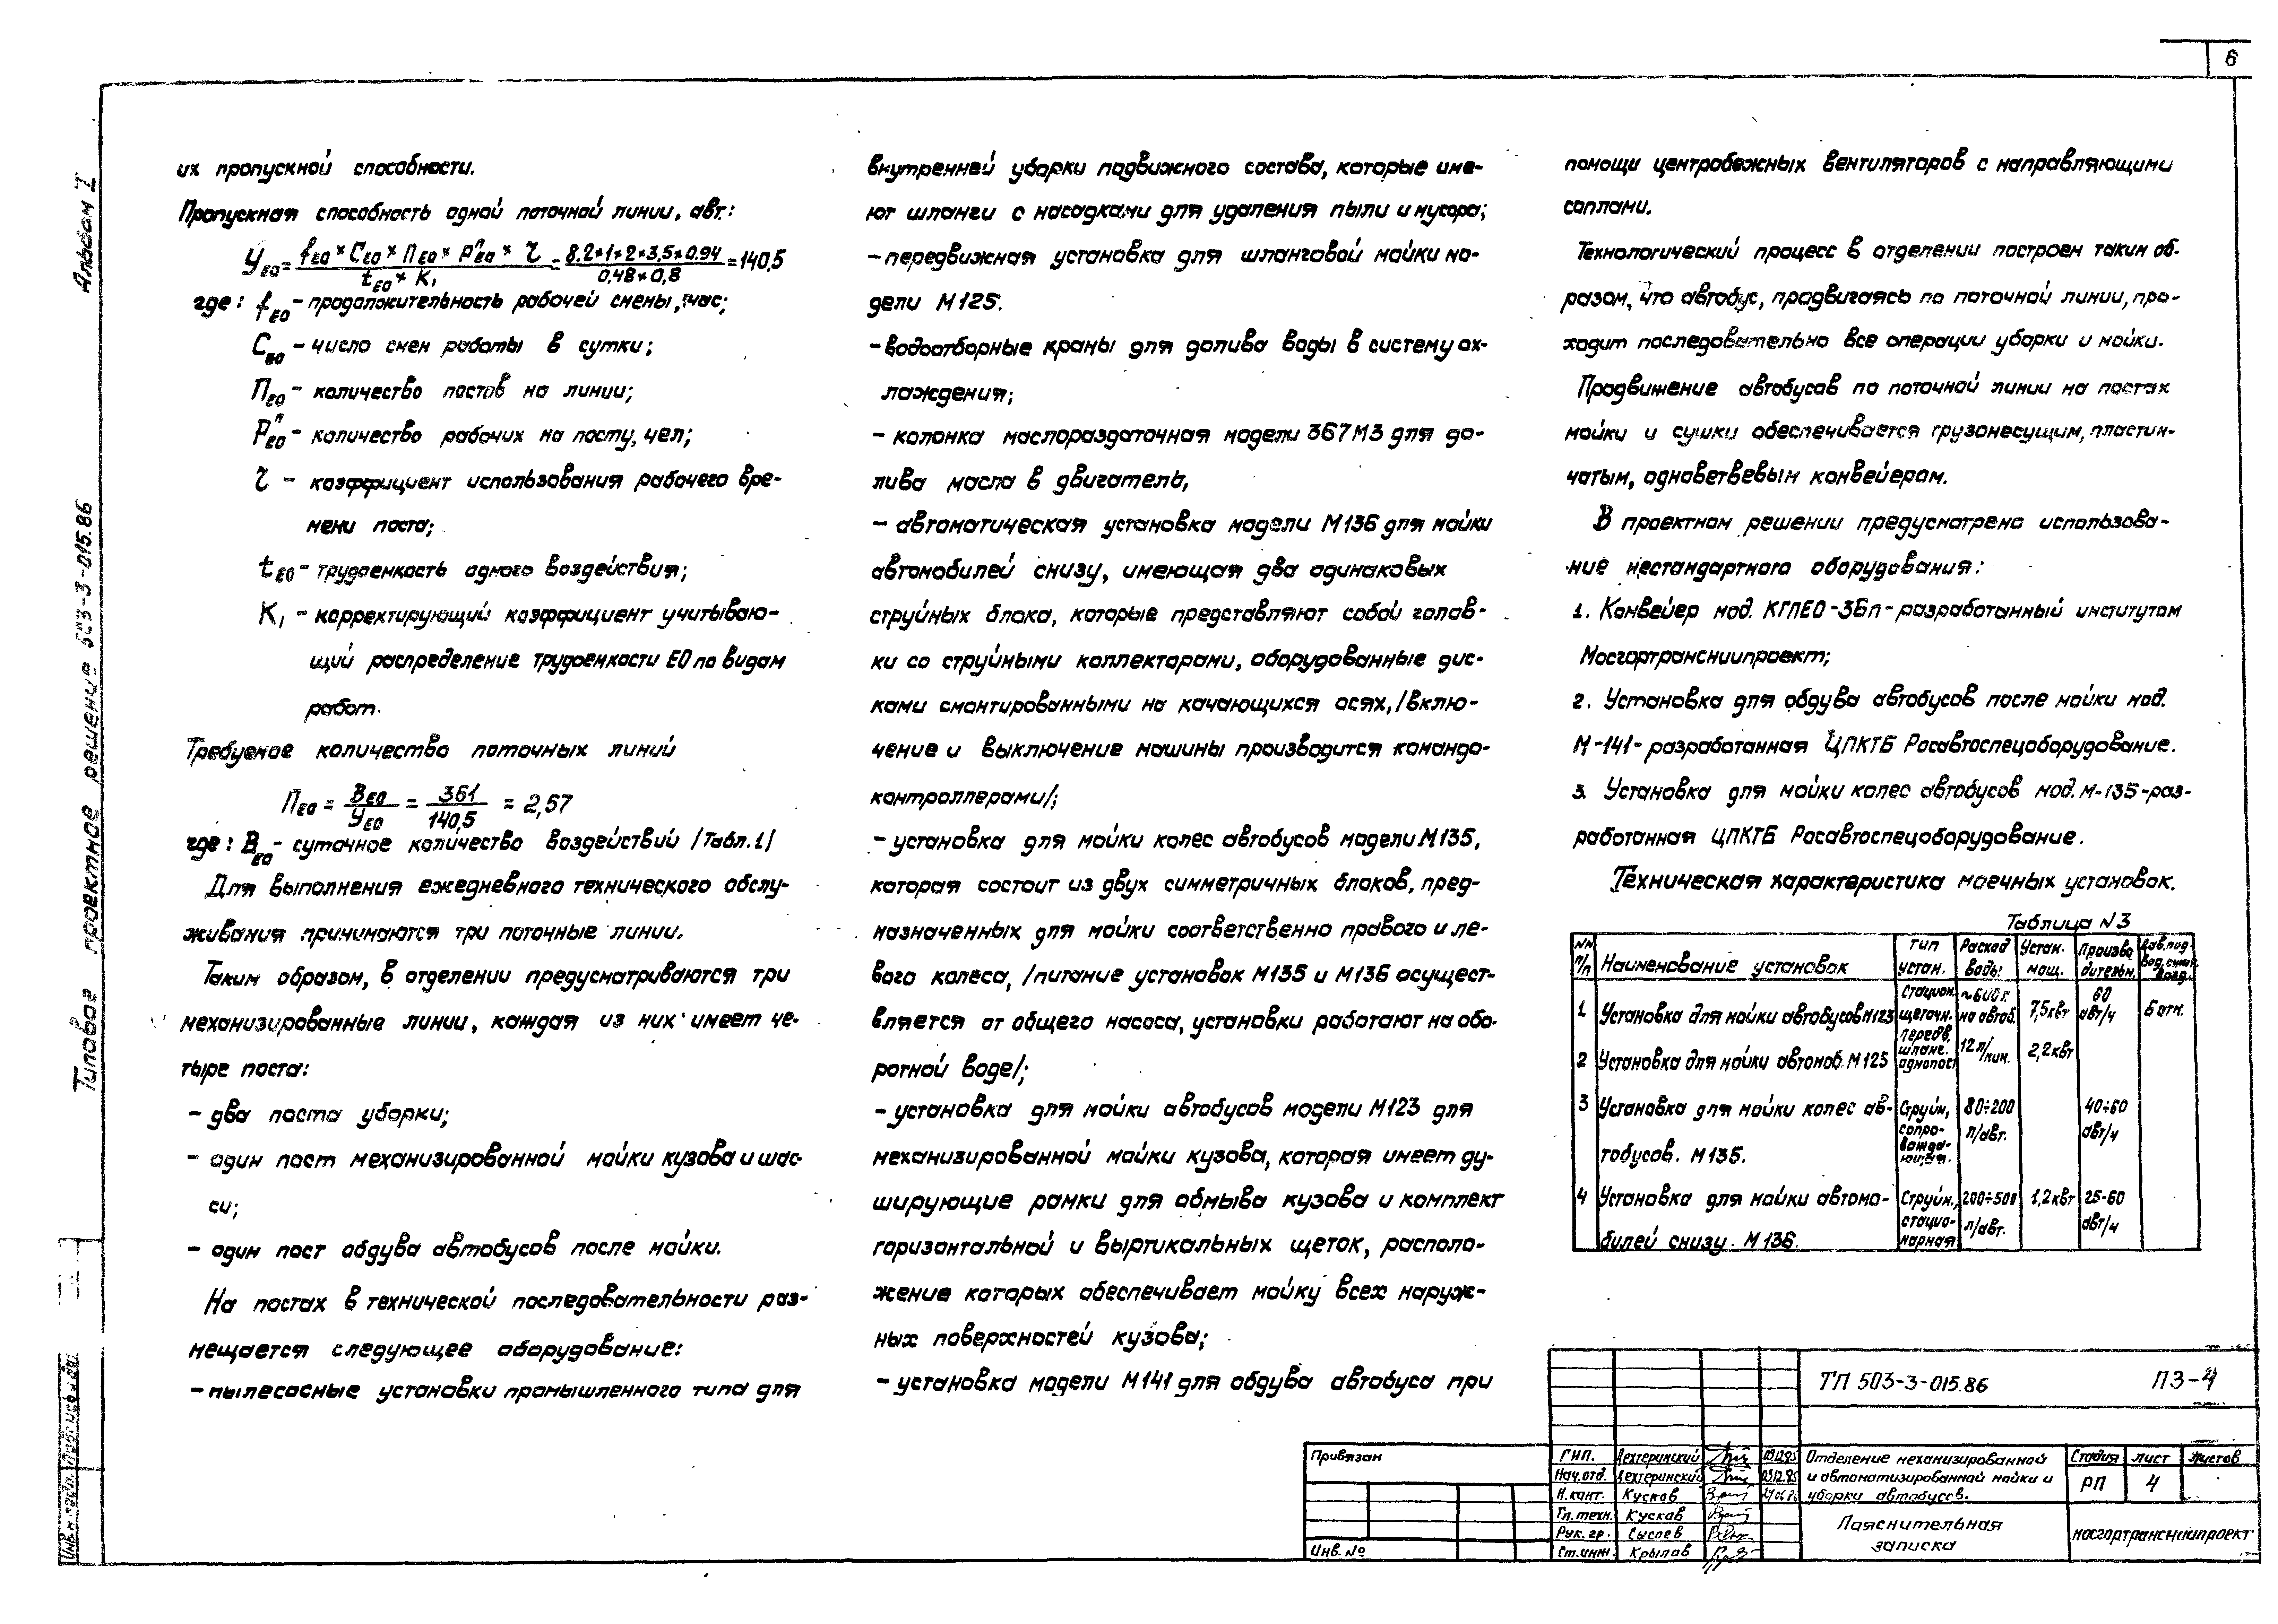 6
Альбом I
Типовое проектное решение 503-3-015.86
их пропускной способности.
Пропускная способность одной поточной линии, авт.:
УЕО = fЕО × СЕО × ПЕО × РᴨЕО × τ / tЕО × К₁ = 8.2×1×2×3,5×0.94 / 0,48×0,8 = 140,5
где: fЕО - продолжительность рабочей смены, час;
СЕО - число смен работы в сутки;
ПЕО - количество постов на линии;
РᴨЕО - количество рабочих на посту, чел;
τ - коэффициент использования рабочего вре-
мени поста;
tЕО - трудоемкость одного воздействия;
К₁ - корректирующий коэффициент учитываю-
щий распределение трудоемкости ЕО по видам
работ.
Требуемое количество поточных линий
ПЕО = ВЕО / УЕО = 361 / 140,5 = 2,57
где: ВЕО - суточное количество воздействий /Табл.1/
Для выполнения ежедневного технического обслу-
живания принимаются три поточные линии.
Таким образом, в отделении предусматриваются три
механизированные линии, каждая из них имеет че-
тыре поста:
- два поста уборки;
- один пост механизированной мойки кузова и шас-
си;
- один пост обдува автобусов после мойки.
На постах в технической последовательности раз-
мещается следующее оборудование:
- пылесосные установки промышленного типа для
внутренней уборки подвижного состава, которые име-
ют шланги с насадками для удаления пыли и мусора;
- передвижная установка для шланговой мойки мо-
дели М125.
- водоотборные краны для долива воды в систему ох-
лаждения;
- колонка маслораздаточная модели 367М3 для до-
лива масла в двигатель,
- автоматическая установка модели М136 для мойки
автомобилей снизу, имеющая два одинаковых
струйных блока, которые представляют собой голов-
ки со струйными коллекторами, оборудованные дис-
ками смонтированными на качающихся осях, /вклю-
чение и выключение машины производится командо-
контроллерами/;
- установка для мойки колес автобусов модели М135,
которая состоит из двух симметричных блоков, пред-
назначенных для мойки соответственно правого и ле-
вого колеса, /питание установок М135 и М136 осущест-
вляется от общего насоса, установки работают на обо-
ротной воде/;
- установка для мойки автобусов модели М123 для
механизированной мойки кузова, которая имеет ду-
ширующие рамки для обмыва кузова и комплект
горизонтальной и выртикальных щеток, располо-
жение которых обеспечивает мойку всех наруж-
ных поверхностей кузова;
- установка модели М141 для обдува автобуса при
помощи центробежных вентиляторов с направляющими
соплами.
Технологический процесс в отделении построен таким об-
разом, что автобус, продвигаясь по поточной линии, про-
ходит последовательно все операции уборки и мойки.
Продвижение автобусов по поточной линии на постах
мойки и сушки обеспечивается грузонесущим, пластин-
чатым, одноветвевым конвейером.
В проектном решении предусмотрено использова-
ние нестандартного оборудования:
1. Конвейер мод. КГПЕО-36п - разработанный институтом
Мосгортрансниипроект;
2. Установка для обдува автобусов после мойки мод.
М-141- разработанная ЦПКТБ Росавтоспецоборудование.
3. Установка для мойки колес автобусов мод. М-135 - раз-
работанная ЦПКТБ Росавтоспецоборудование.
Техническая характеристика моечных установок.
Таблица N3
NN п/п Наименование установок Тип устан. Расход воды Устан. мощ. Произво дительн.
1 Установка для мойки автобусов М123 Стацион. щеточн. ~600 г. на автоб. 7,5квт 60 авт/ч 6 атм.
2 Установка для мойки автомоб. М125 передв. шланг. однопост 12 л/мин. 2,2квт
3 Установка для мойки колес ав- тобусов. М135. Струйн, сопро- вожда- ющая. 80÷200 л/авт. 40÷60 авт/ч
4 Установка для мойки автомо- билей снизу. М136. Струйн., стацио- нарная 200÷500 л/авт. 1,2квт 25-60 авт/ч
ТП 503-3-015.86 ПЗ-4
Привязан
Инв. №
ГИП. Лехтеринский 09.12.85
Нач.отд. Лехтеринский 09.12.85
Н.конт. Кусков
Гл.техн. Кусков
Рук.гр. Сысоев
Ст.инж. Крылов
Отделение механизированной
и автоматизированной мойки и
уборки автобусов.
Стадия Лист Листов
РП 4
Пояснительная
записка
мосгортрансниипроект
Инв.н.подл. Подпись и дата